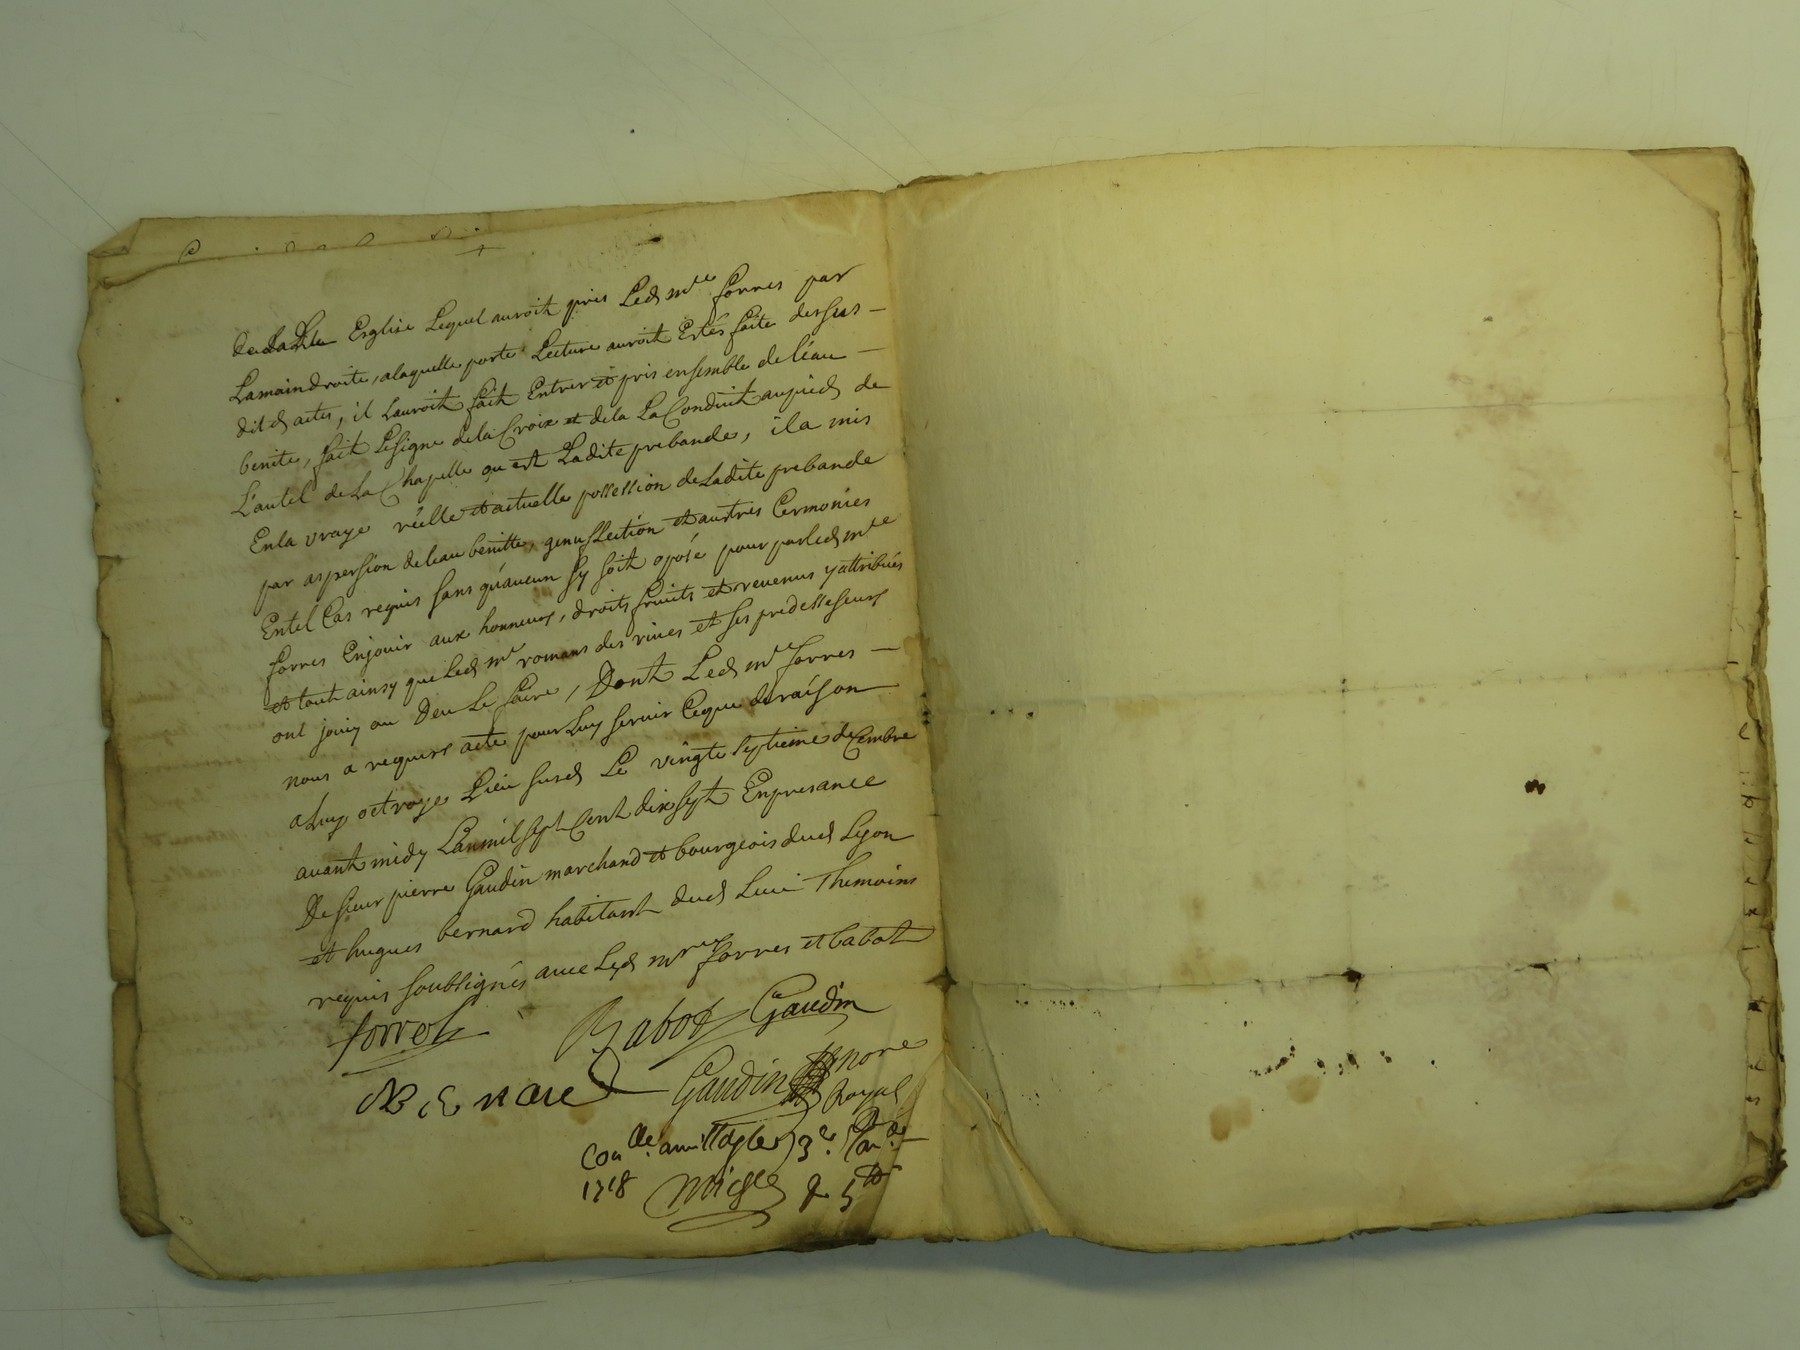 de ladite Esglise Lequel auroit pris Led mre forres par
Lamain droite, alaquelle porte Lecture auroit Estés faite dessus
dit d actes, il Lauroit fait Entrer et pris ensemble de l'éau
benite, fait Lesigne dela Croix et dela La Conduit aupied de
L'autel de La Chapelle ou est Ladite prebande, ila mis
Enla vraye réelle et actuelle possession de Ladite prebande
par aspersion deleau benitte, genuflection et autres Cermonies
Entel Cas requis sans qu'aucun sy soit oposé pour par led mre
forres Enjouir aux honneurs, droits fruits et revenus yattribués
et tout ainsy que Led mr romans des rives et ses predesseseurs
ont jouiy ou Deu Le faire, Dont Led mr forres
nous a requers acte pour Luy servir Ceque de raison
a Luy octroyé Lieu susd Le vingt septieme decembre
avant midy Lanmil sept Cent dix sept Enpresance
De sieur pierre Gaudin marchand et bourgeois dud Lyon
et hugues bernard habitant dud Lieu Themoins
requis soubsignés avec Led mre forres et babot
forres Babot Gaudin
BERNARD Gaudin nore
Royal
Conlle 3e
1718 & 5tt